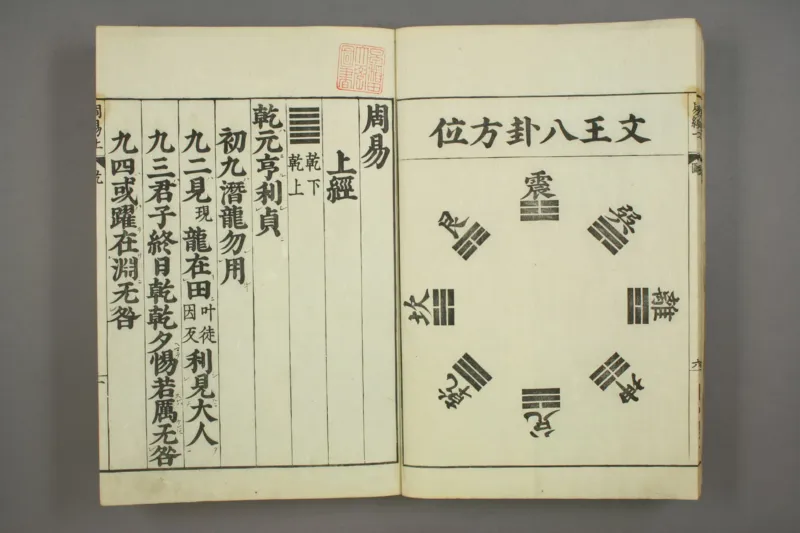 文王八卦方位
震
巽
離
坤
兌
乾
坎
艮
六
周易
上經
乾下
乾上
乾元亨利貞
初九潛龍勿用
九二見現龍在田叶徒因反利見大人
九三君子終日乾乾夕惕若厲无咎
九四或躍在淵无咎
周易上 乾